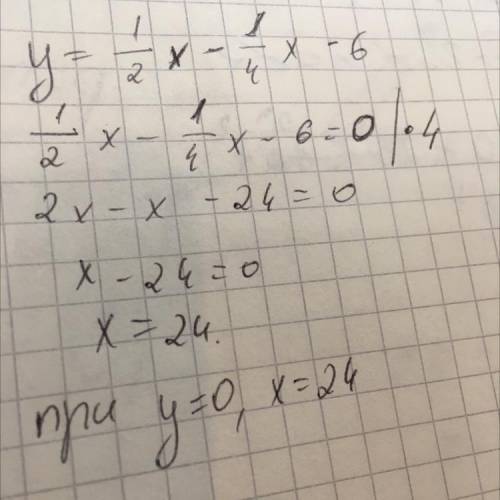 y = 1/2 x - 1/4 x - 6
1/2 x - 1/4 x - 6 = 0 | · 4
2x - x - 24 = 0
x - 24 = 0
x = 24.
при y=0, x=24